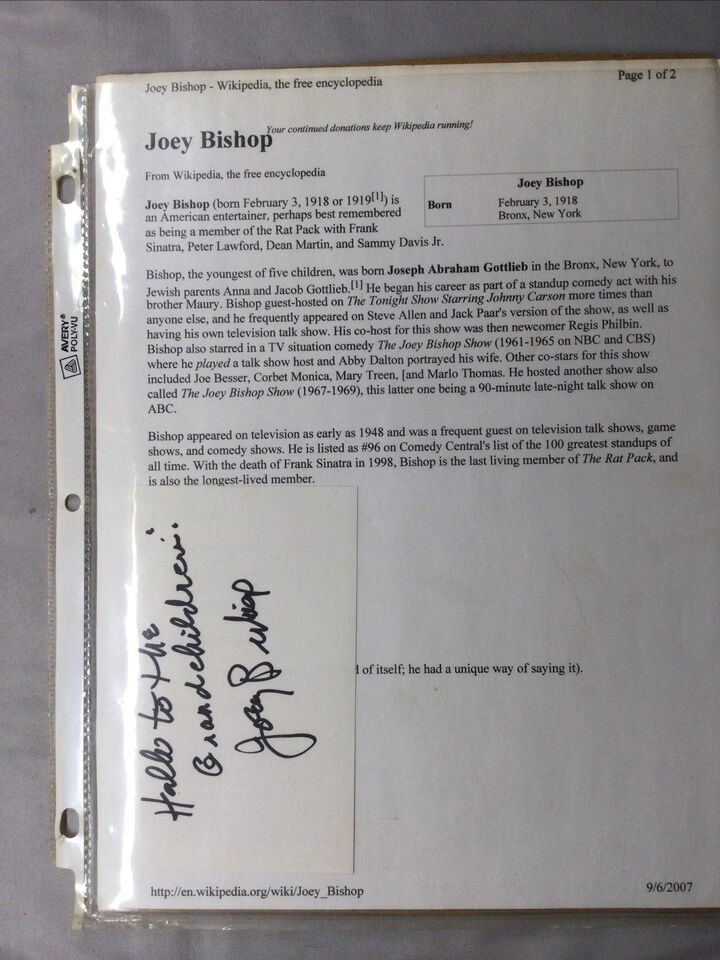 Joey Bishop - Wikipedia, the free encyclopedia
Page 1 of 2
Your continued donations keep Wikipedia running!
Joey Bishop
From Wikipedia, the free encyclopedia
Joey Bishop (born February 3, 1918 or 1919[1]) is
an American entertainer, perhaps best remembered
as being a member of the Rat Pack with Frank
Sinatra, Peter Lawford, Dean Martin, and Sammy Davis Jr.
Joey Bishop
Born February 3, 1918
Bronx, New York
Bishop, the youngest of five children, was born Joseph Abraham Gottlieb in the Bronx, New York, to
Jewish parents Anna and Jacob Gottlieb.[1] He began his career as part of a standup comedy act with his
brother Maury. Bishop guest-hosted on The Tonight Show Starring Johnny Carson more times than
anyone else, and he frequently appeared on Steve Allen and Jack Paar's version of the show, as well as
having his own television talk show. His co-host for this show was then newcomer Regis Philbin.
Bishop also starred in a TV situation comedy The Joey Bishop Show (1961-1965 on NBC and CBS)
where he played a talk show host and Abby Dalton portrayed his wife. Other co-stars for this show
included Joe Besser, Corbet Monica, Mary Treen, [and Marlo Thomas. He hosted another show also
called The Joey Bishop Show (1967-1969), this latter one being a 90-minute late-night talk show on
ABC.
Bishop appeared on television as early as 1948 and was a frequent guest on television talk shows, game
shows, and comedy shows. He is listed as #96 on Comedy Central's list of the 100 greatest standups of
all time. With the death of Frank Sinatra in 1998, Bishop is the last living member of The Rat Pack, and
is also the longest-lived member.
of itself; he had a unique way of saying it).
Hallo to the
Grandchildren:
Joey Bishop
http://en.wikipedia.org/wiki/Joey_Bishop
9/6/2007
AVERY®
POLY-VU